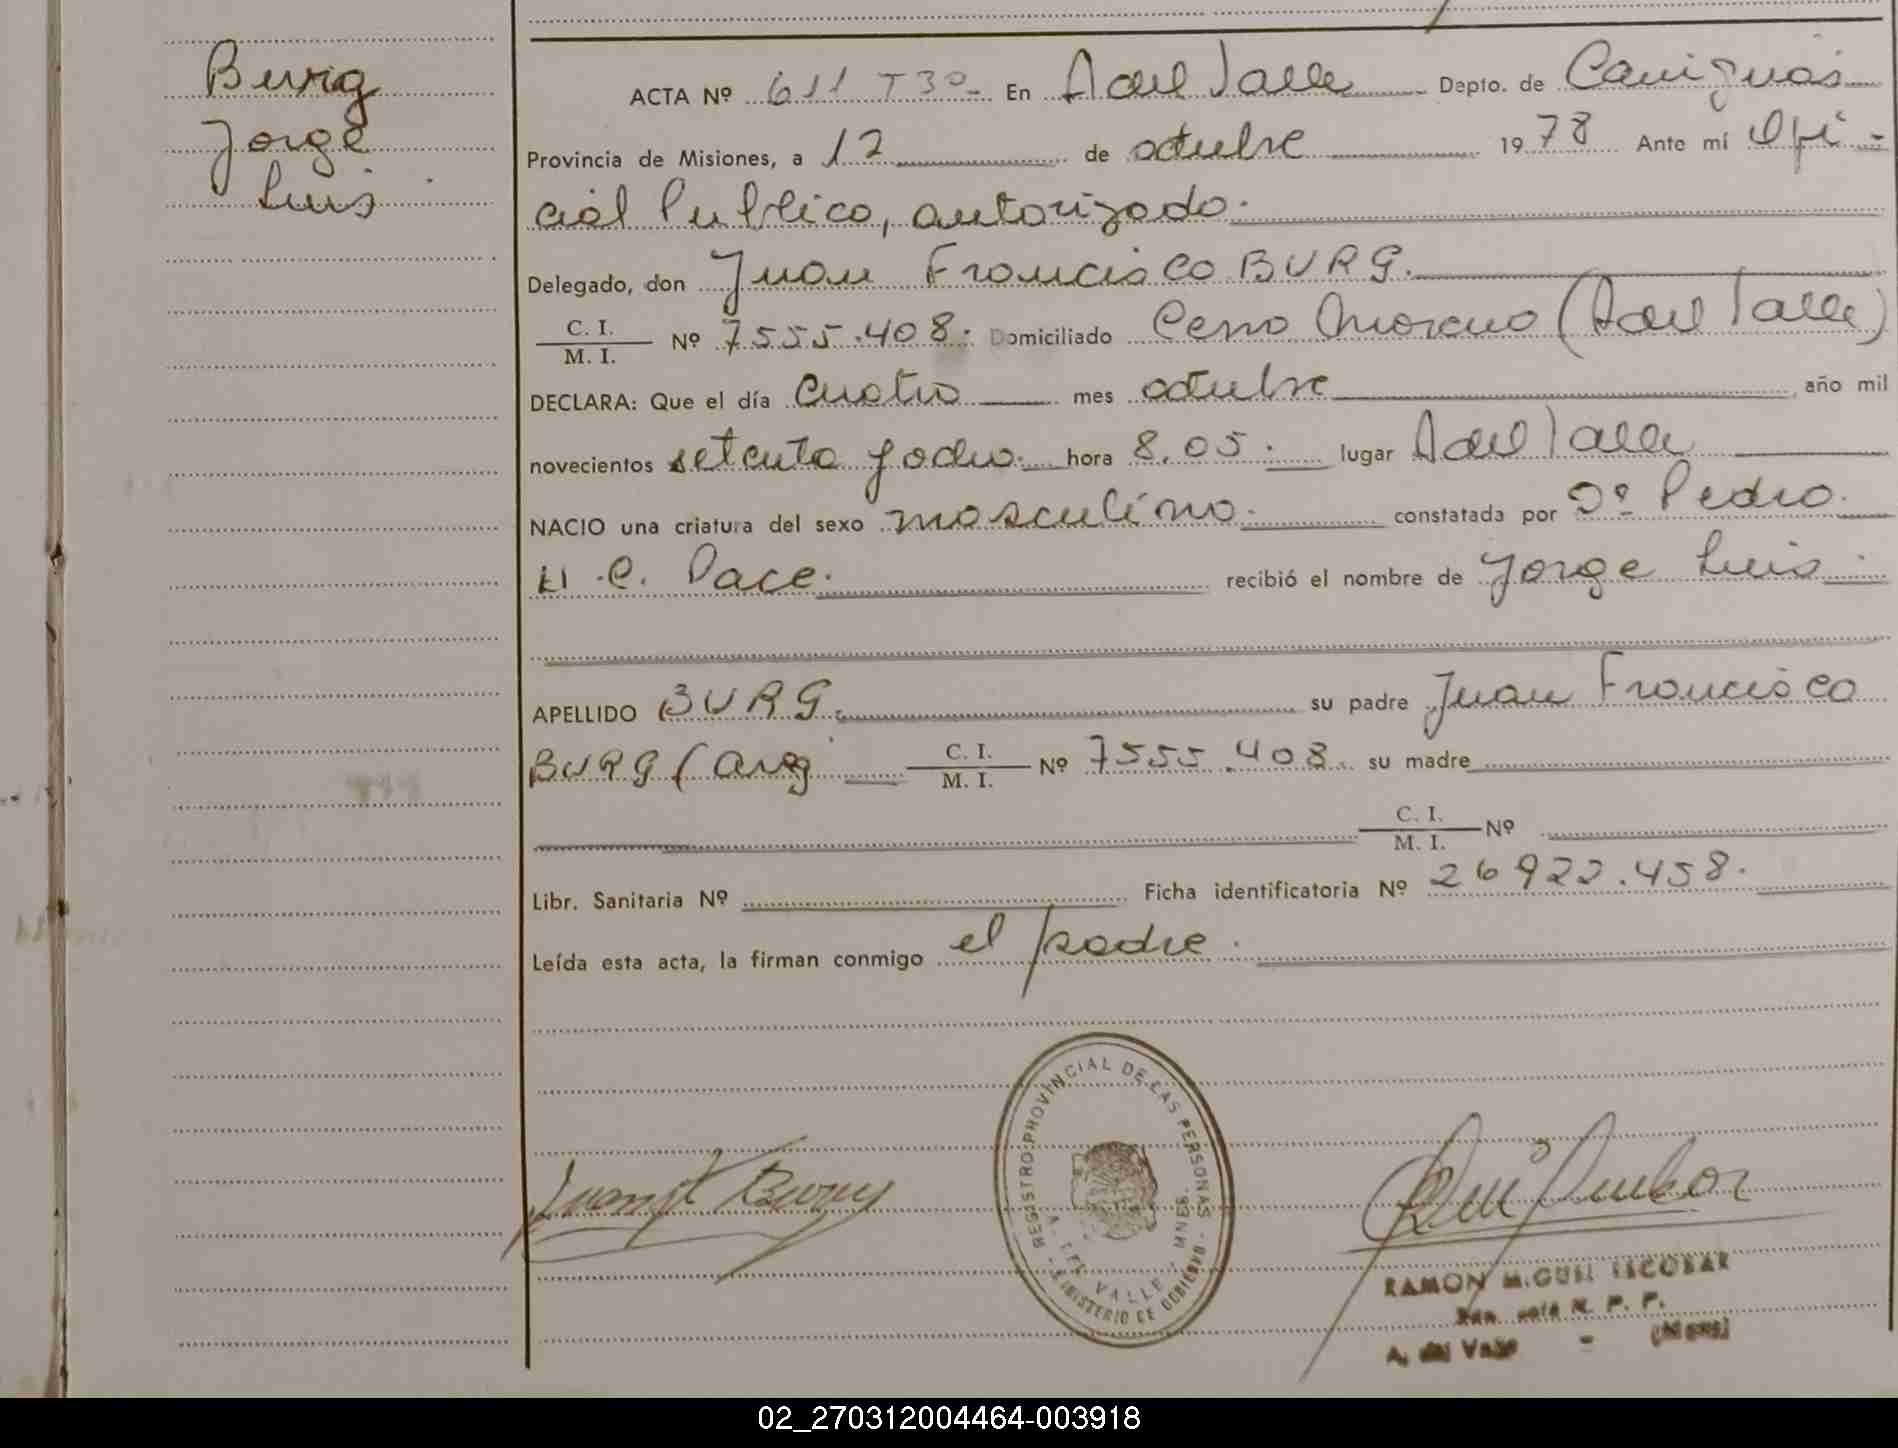 Burg
Jorge
Luis
ACTA Nº 611 T3º En A del Valle Depto. de Cainguás
Provincia de Misiones, a 12 de octubre 1978 Ante mí Ofi-
cial Publico, autorizado.
Delegado, don Juan Francisco BURG.
C. I.
M. I. Nº 7555.408. Domiciliado Cerro Moreno (A del Valle)
DECLARA: Que el día cuatro mes octubre, año mil
novecientos setenta y ocho. hora 8.05. lugar A del Valle
NACIO una criatura del sexo masculino. constatada por Dº Pedro
H. C. Pace. recibió el nombre de Jorge Luis
APELLIDO BURG. su padre Juan Francisco
BURG (Arg C. I.
M. I. Nº 7555.408. su madre
C. I.
M. I. Nº
Libr. Sanitaria Nº Ficha identificatoria Nº 26922.458.
Leída esta acta, la firman conmigo el padre.
REGISTRO PROVINCIAL DE LAS PERSONAS
A. DEL VALLE - MNES.
MINISTERIO DE GOBIERNO
RAMON MIGUEL ESCOBAR
R. P. P.
A. del Valle - (Mnes)
02_270312004464-003918